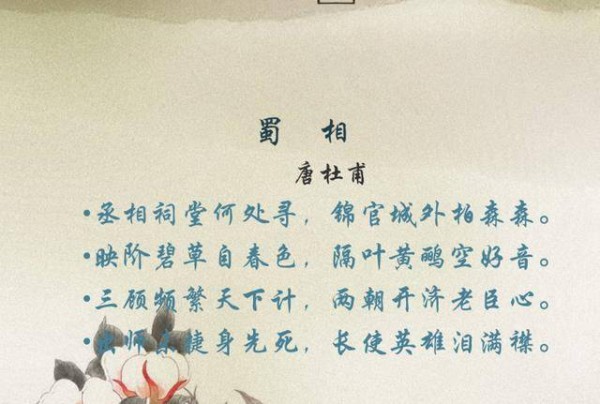 蜀 相
唐杜甫
•丞相祠堂何处寻，锦官城外柏森森。
•映阶碧草自春色，隔叶黄鹂空好音。
•三顾频繁天下计，两朝开济老臣心。
•出师未捷身先死，长使英雄泪满襟。